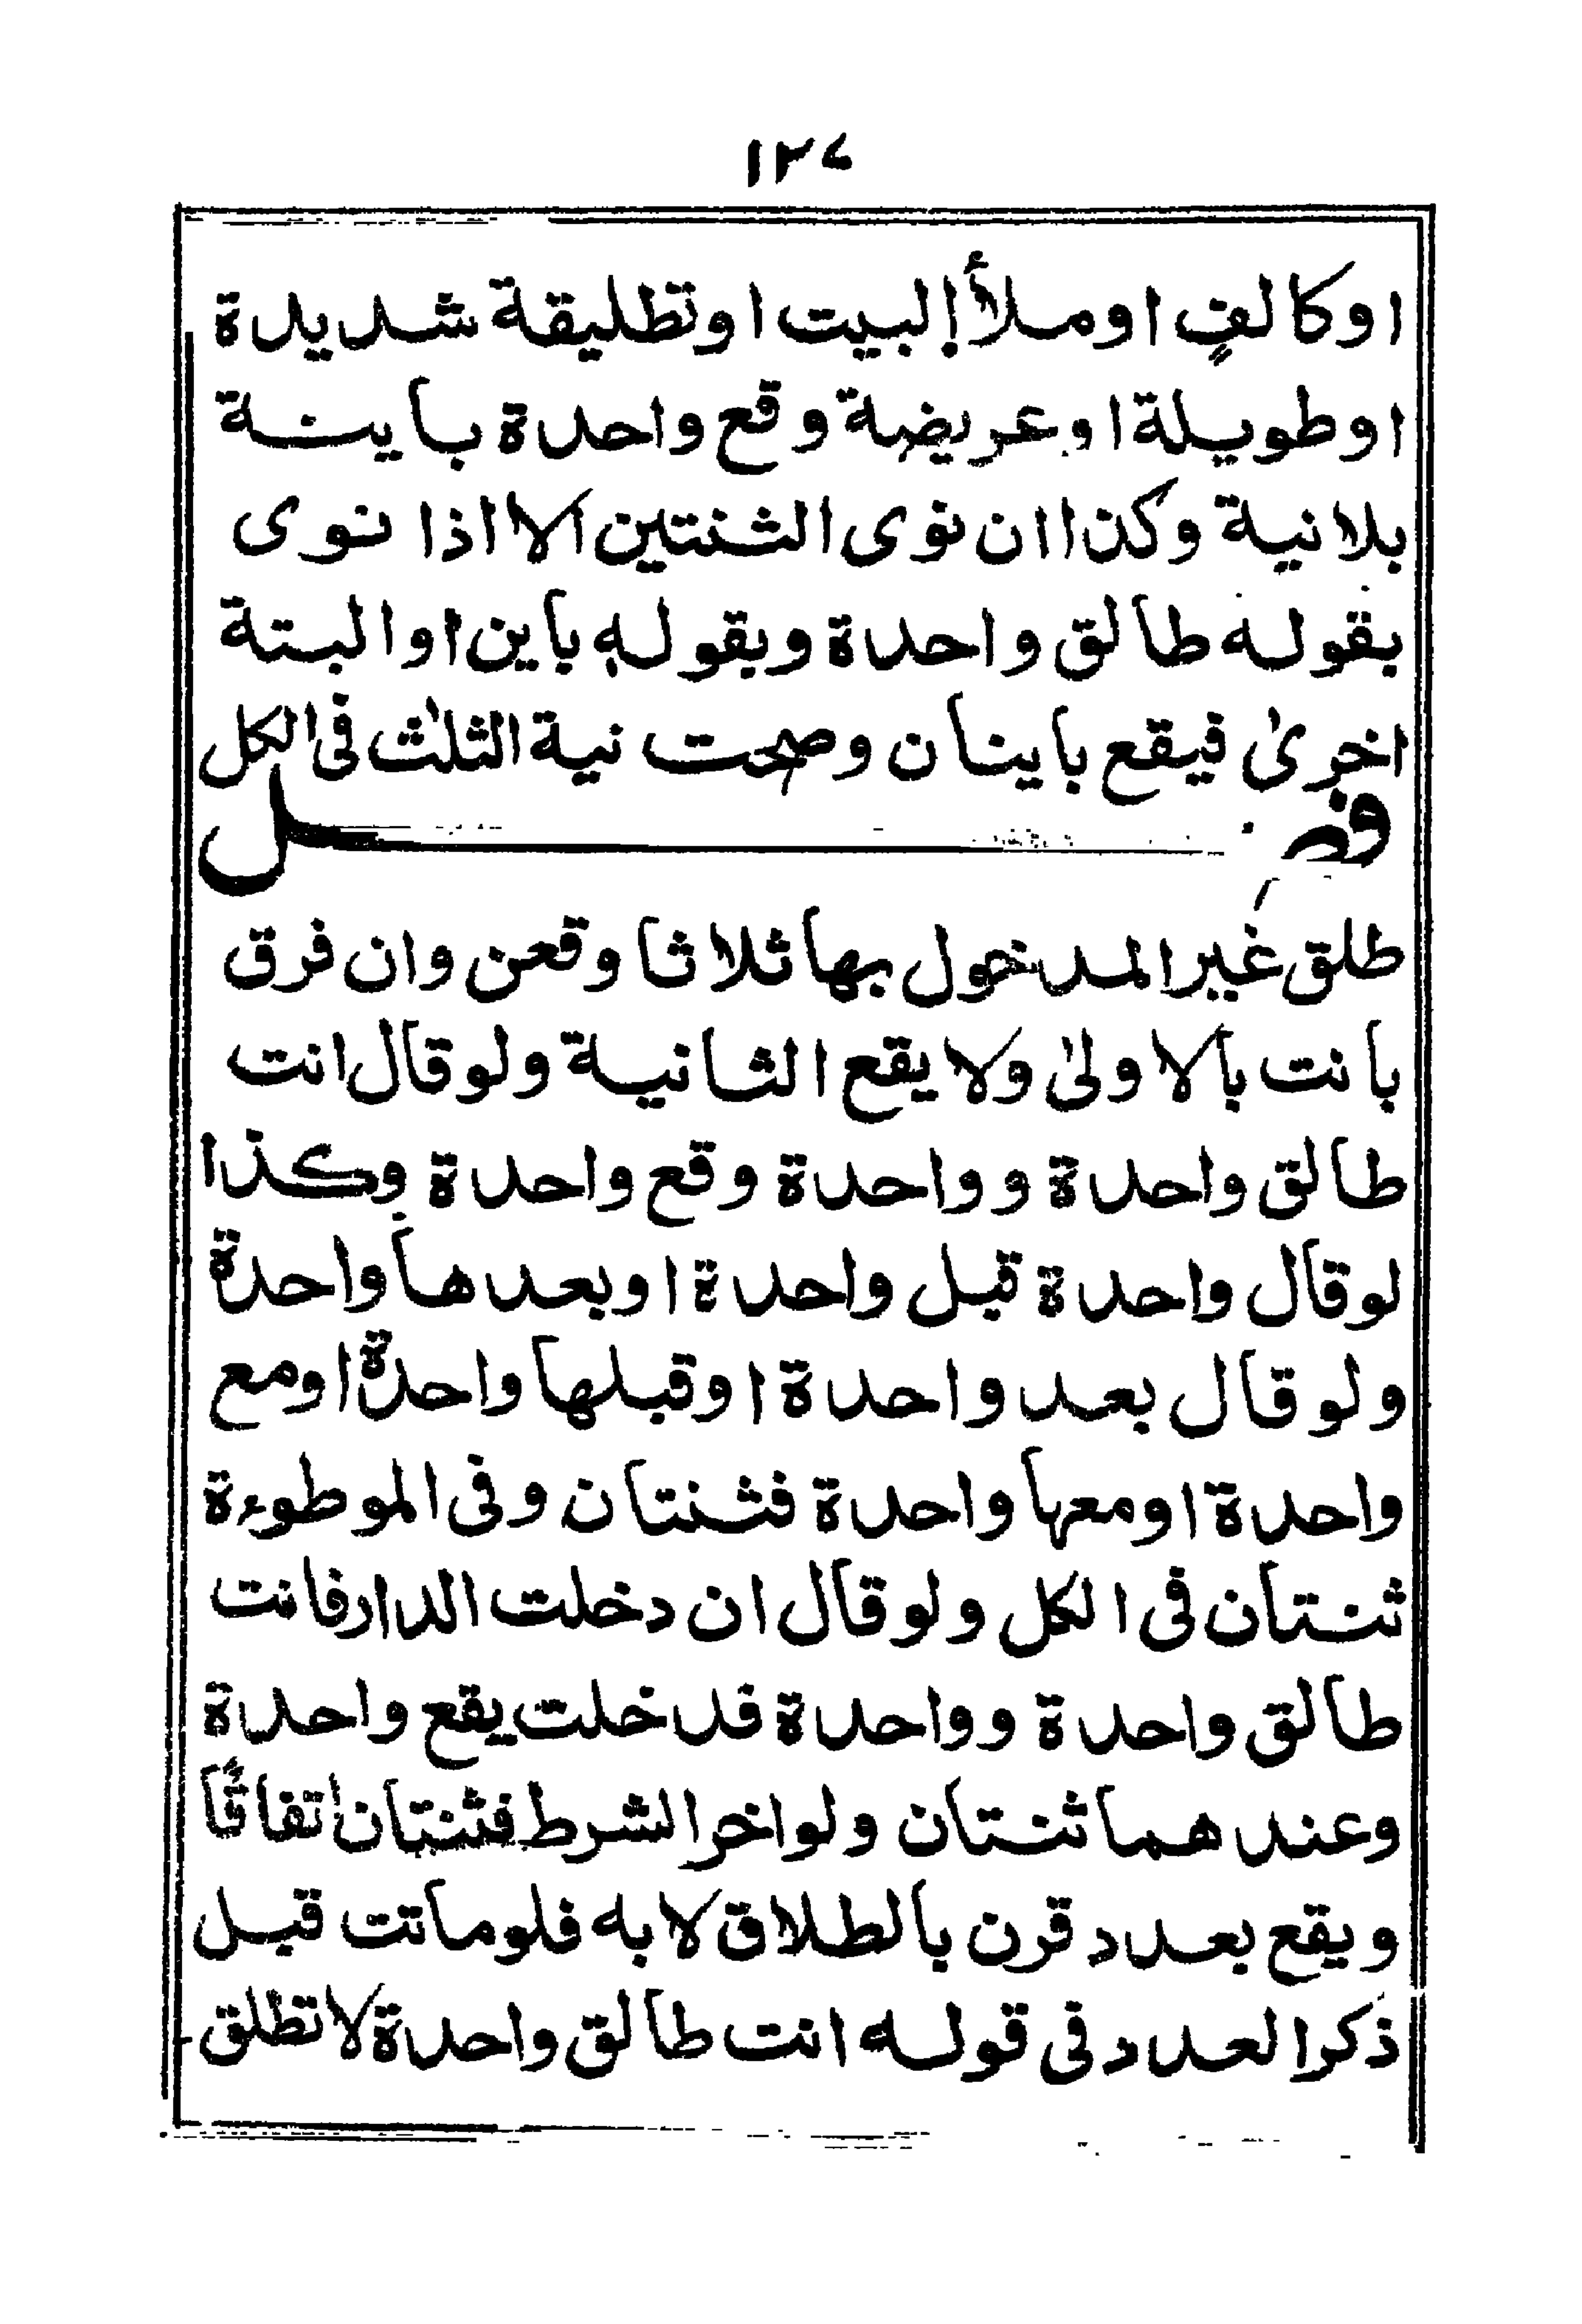 ١٢٧
او كالفٍ او ملأ البيت او تطليقة شديدة
او طويلة او عريضة وقع واحدة باينة
بلا نية وكذا ان نوى الثنتين الا اذا نوى
بقوله طالق واحدة وبقوله باين او البتة
اخرىٰ فيقع باينان وصحت نية الثلٰث فى الكل
فصل
طلق غير المدخول بها ثلاثا وقعن وان فرق
بانت بالاولىٰ ولا يقع الثانية ولو قال انت
طالق واحدة وواحدة وقع واحدة وكذا
لو قال واحدة قبل واحدة او بعدها واحدة
ولو قال بعد واحدة او قبلها واحدة او مع
واحدة او معها واحدة فثنتان وفى الموطوءة
ثنتان فى الكل ولو قال ان دخلت الدار فانت
طالق واحدة وواحدة فدخلت يقع واحدة
وعندهما ثنتان ولو اخر الشرط فثنتان اتفاقًا
ويقع بعدد قرن بالطلاق لا به فلو ماتت قبل
ذكر العدد فى قوله انت طالق واحدة لا تطلق